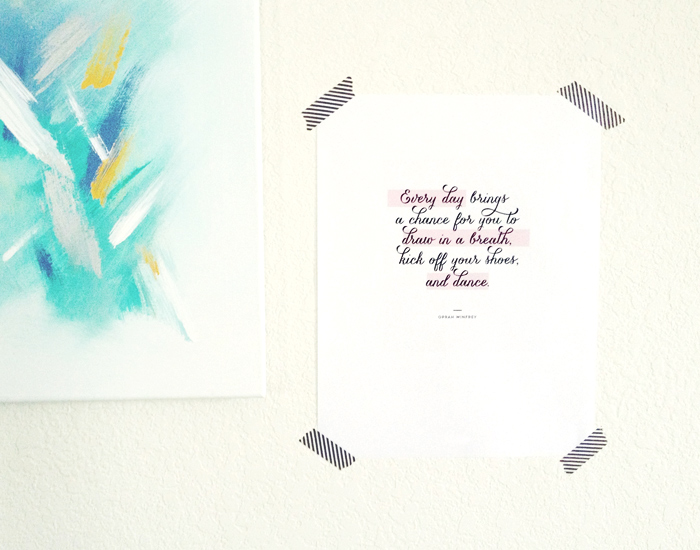 Every day brings
a chance for you to
draw in a breath,
kick off your shoes,
and dance.
OPRAH WINFREY